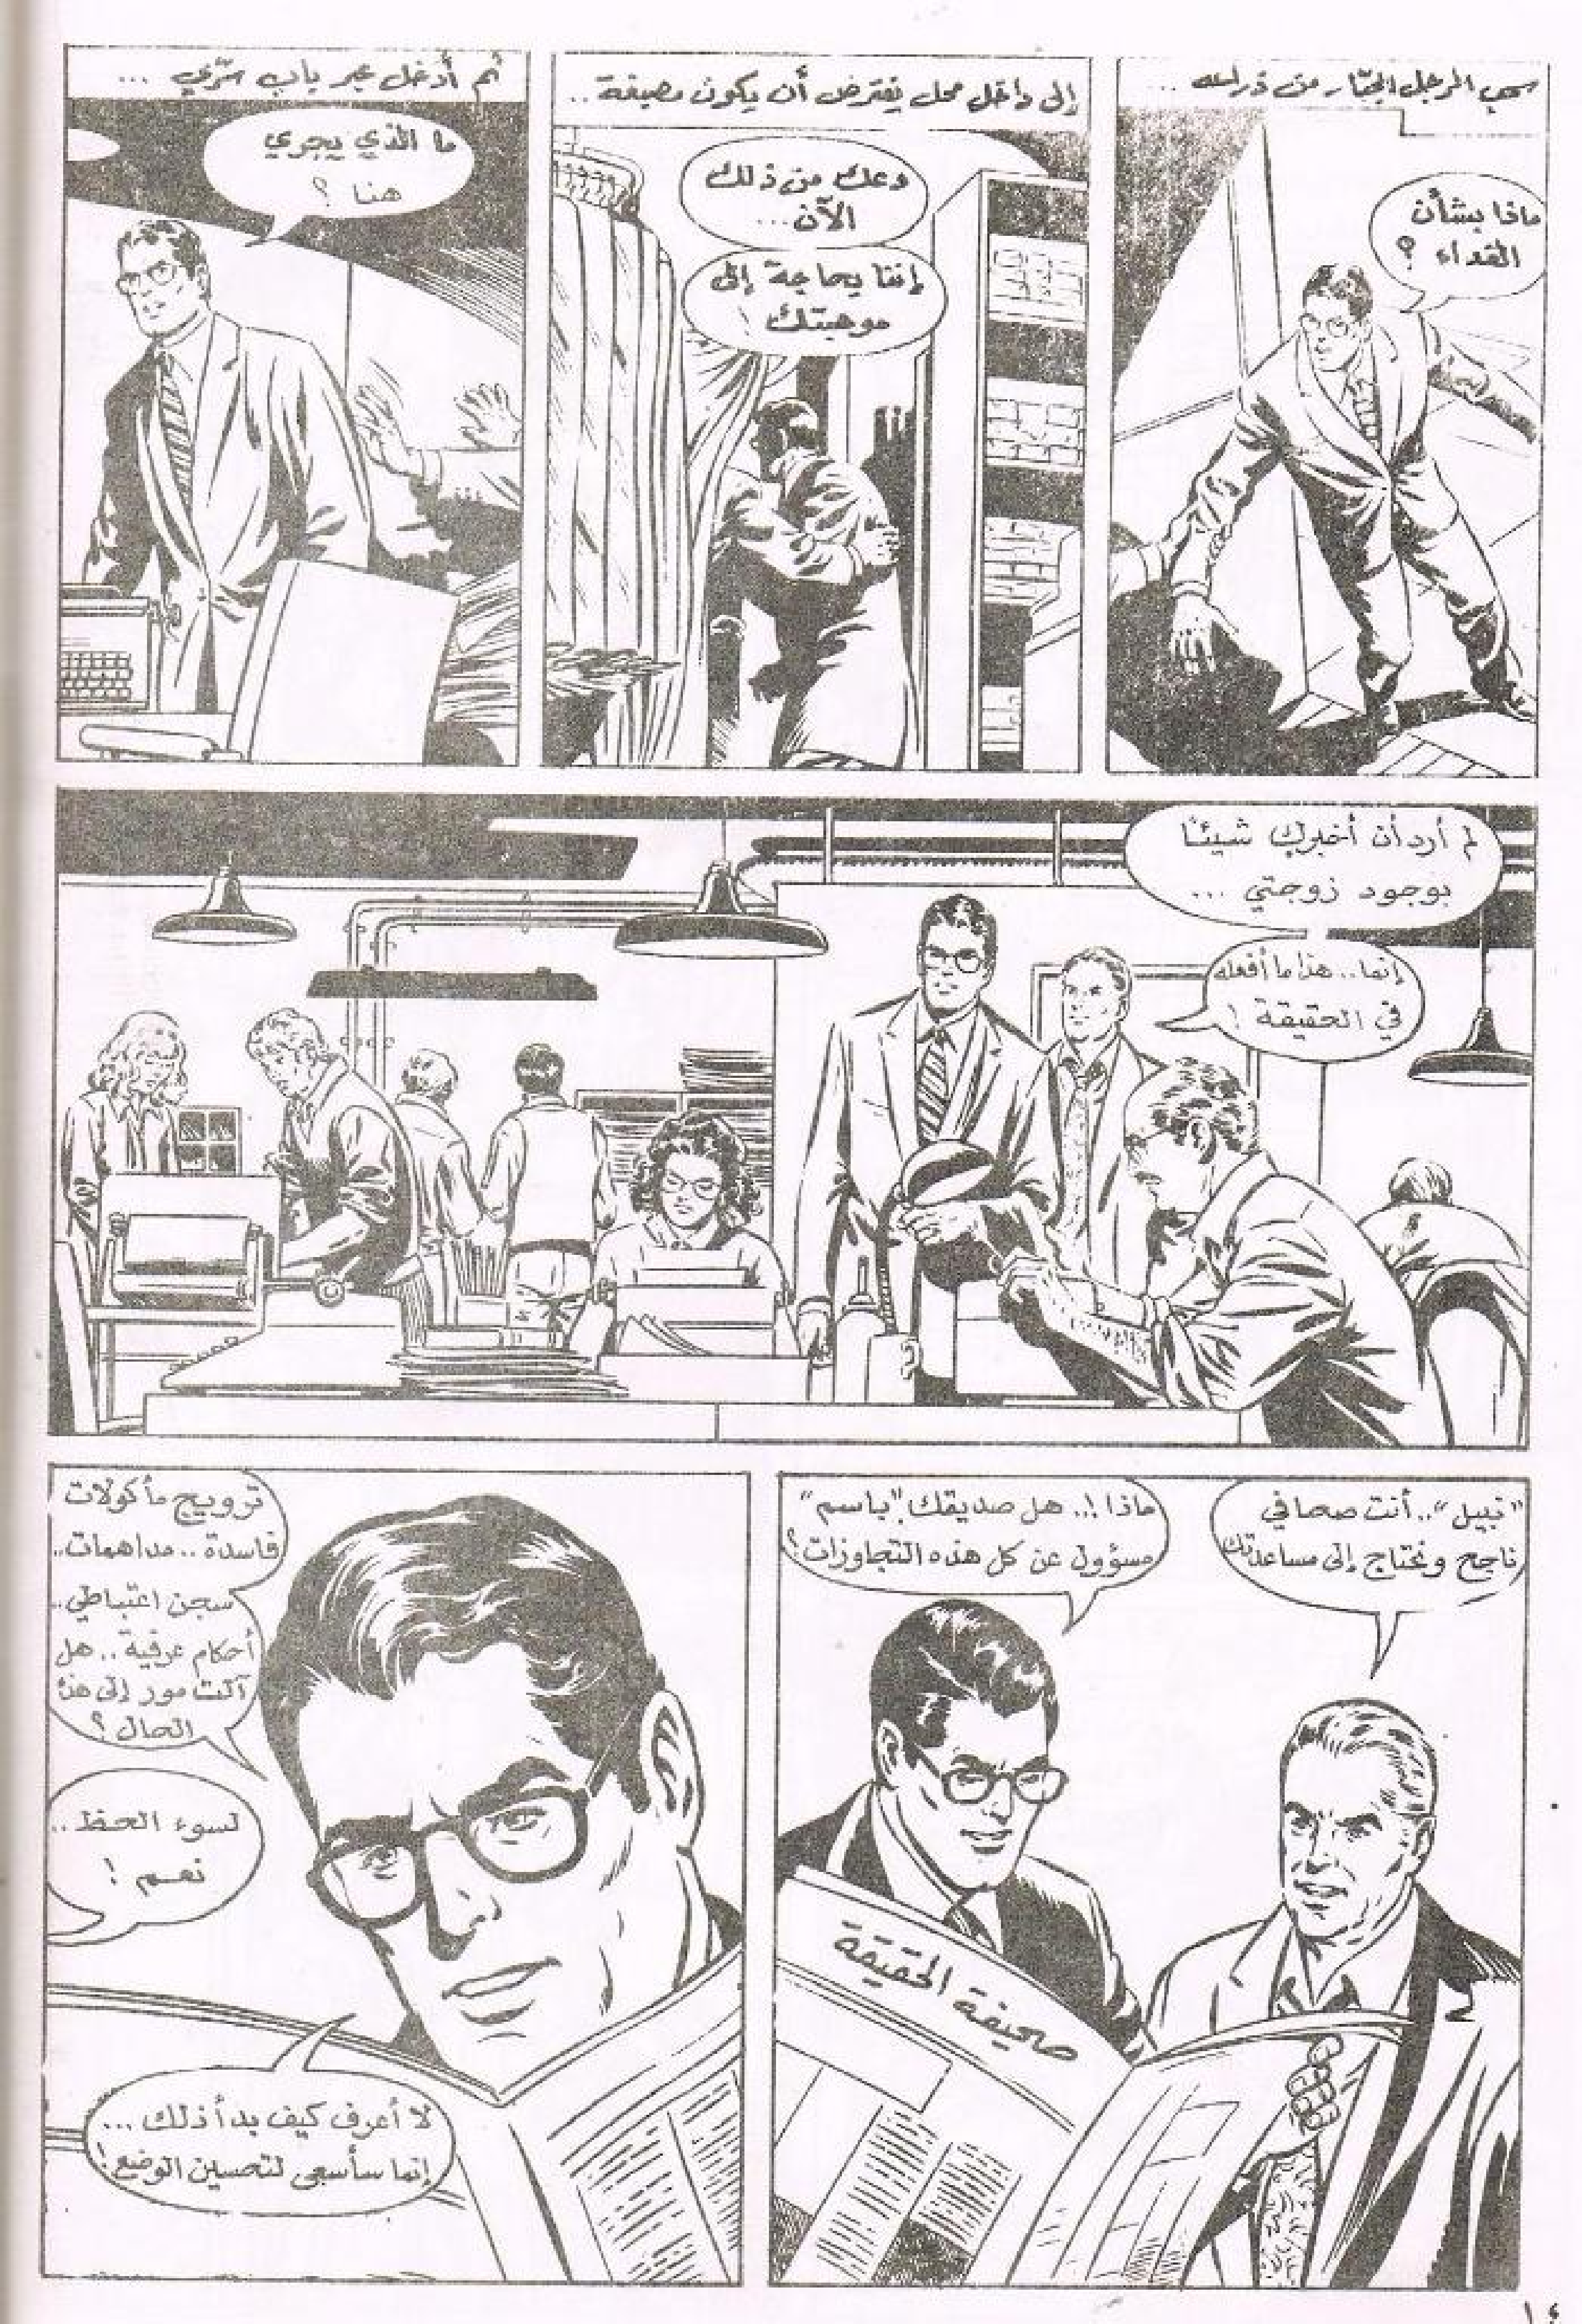 سحب الرجل الجبّار من ذراعه ...
ماذا بشأن
الغداء ؟
إلى داخل محل يفترض أن يكون مصبغة ..
دعك من ذلك
الآن ...
إننا بحاجة إلى
موهبتك !
ثم أدخل عبر باب سرّي ...
ما الذي يجري
هنا ؟
لم أرد أن أخبرك شيئًا
بوجود زوجتي ...
إنما .. هذا ما أفعله
في الحقيقة !
"نبيل" .. أنت صحافي
ناجح ونحتاج إلى مساعدتك
ماذا !.. هل صديقك "باسم"
مسؤول عن كل هذه التجاوزات ؟
صحيفة الحقيقة
ترويج مأكولات
فاسدة .. مداهمات ..
سجن اعتباطي ..
أحكام عرفية .. هل
آلت مور إلى هذا
الحال ؟
لسوء الحظ ..
نعم !
لا أعرف كيف بدأ ذلك ...
إنما سأسعى لتحسين الوضع !